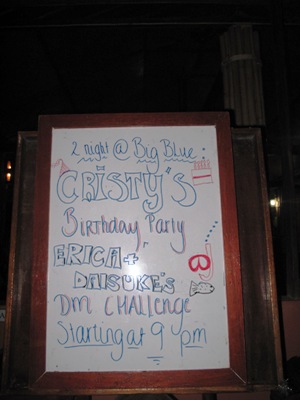 2 night @ Big Blue:
CRISTY'S
Birthday Party
ERICA +
DAISUKE'S
DM CHALLENGE
Starting at 9 pm